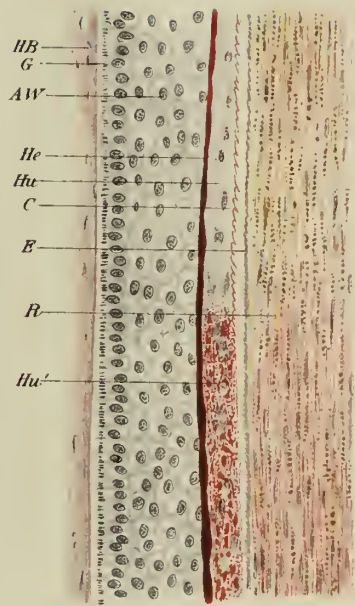 HB
G
AW
He
Hu
C
E
R
Hu'